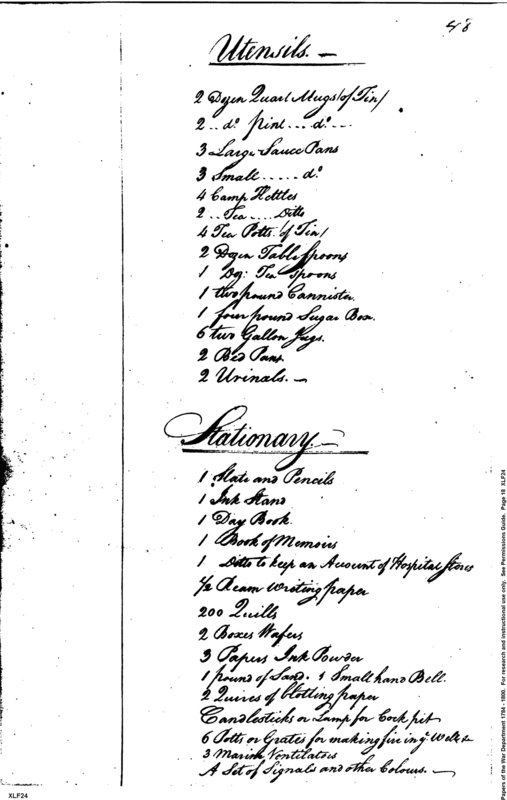 48
Utensils. —
2 Dozen Quart Mugs (of Tin)
2 .. do. pint ... do. ..
3 Large Sauce Pans
3 Small ..... do.
4 Camp Kettles
2 .. Tea .... Ditto
4 Tea Potts (of Tin)
2 Dozen Table Spoons
1 Dz: Tea Spoons
1 two pound Cannister
1 four pound Sugar Box.
6 two Gallon Jugs.
2 Bed Pans.
2 Urinals. —
Stationary. —
1 Slate and Pencils
1 Ink Stand
1 Day Book.
1 Book of Memoirs
1 Ditto to keep an Account of Hospital Stores
1/2 Ream writing paper
200 Quills
2 Boxes Wafers
3 Papers Ink Powder
1 pound of Sand. 1 Small hand Bell.
2 Quires of blotting paper
Candlesticks or Lamp for Cock pit
6 Potts or Grates for making fire in ye
3 Marine Ventilators
A Set of Signals and other Colours. —
Papers of the War Department 1784 - 1800. For research and instructional use only. See Permissions Guide. Page 18 XLF24
XLF24